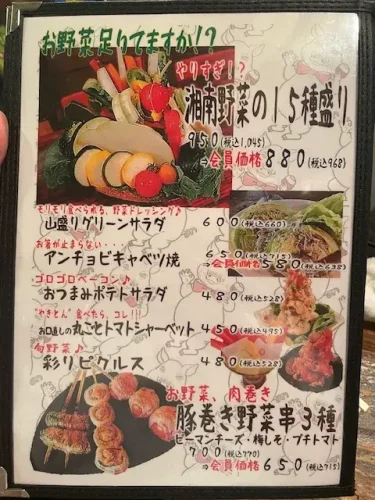 お野菜足りてますか!?
やりすぎ!?
湘南野菜の15種盛り
950(税込1,045)
⇒会員価格880(税込968)
モリモリ食べられる、野菜ドレッシング♪
山盛りグリーンサラダ 600(税込660)
お箸が止まらない・・・
アンチョビキャベツ焼 650(税込715)
⇒会員価格580(税込638)
ゴロゴロベーコン♪
おつまみポテトサラダ 480(税込528)
"やきとん"食べたら、コレ!!
お口直しの丸ごとトマトシャーベット 450(税込495)
旬野菜♪
彩りピクルス 480(税込528)
お野菜、肉巻き
豚巻き野菜串3種
ピーマンチーズ・梅しそ・プチトマト
700(税込770)
⇒会員価格650(税込715)